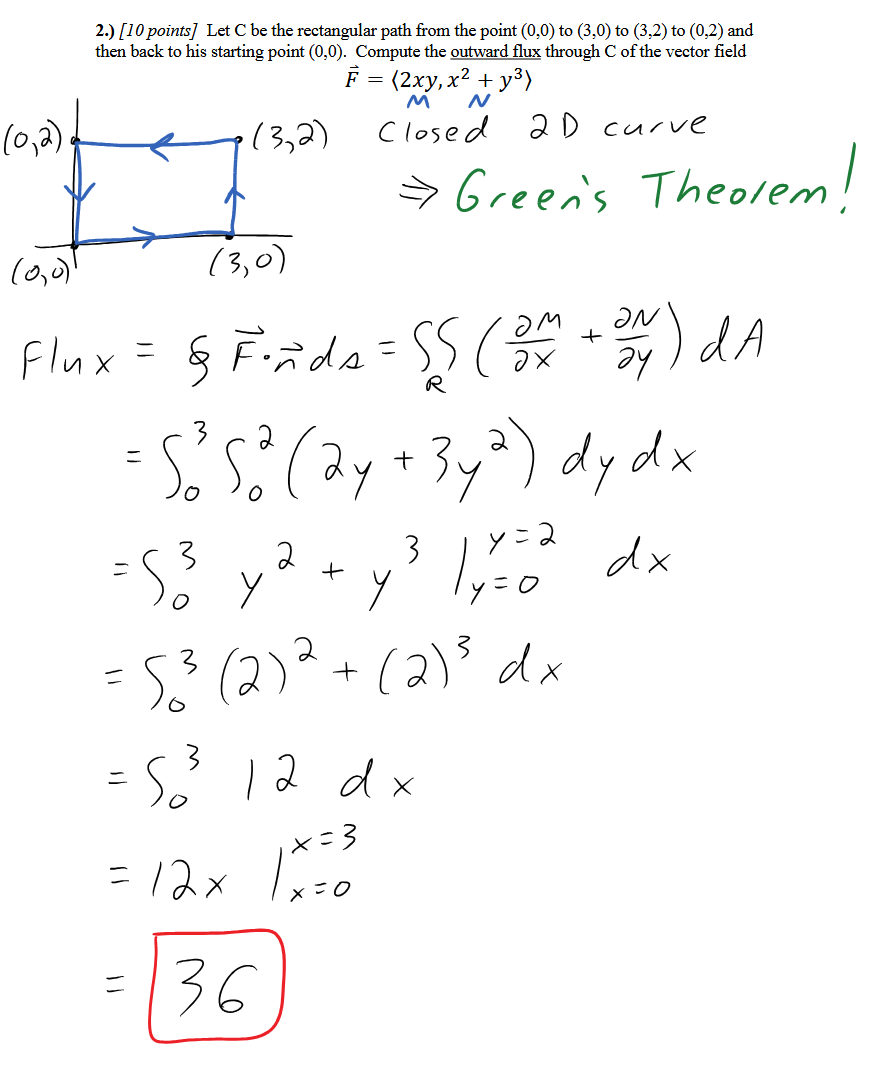 2.) [10 points] Let C be the rectangular path from the point (0,0) to (3,0) to (3,2) to (0,2) and
then back to his starting point (0,0). Compute the outward flux through C of the vector field
F⃗ = ⟨2xy, x² + y³⟩
M N
(0,2) (3,2) Closed 2D curve
⇒ Green's Theorem!
(0,0) (3,0)
Flux = ∮ F⃗·n⃗ ds = ∬_R (∂M/∂x + ∂N/∂y) dA
= ∫₀³ ∫₀² (2y + 3y²) dy dx
= ∫₀³ y² + y³ |_{y=0}^{y=2} dx
= ∫₀³ (2)² + (2)³ dx
= ∫₀³ 12 dx
= 12x |_{x=0}^{x=3}
= 36